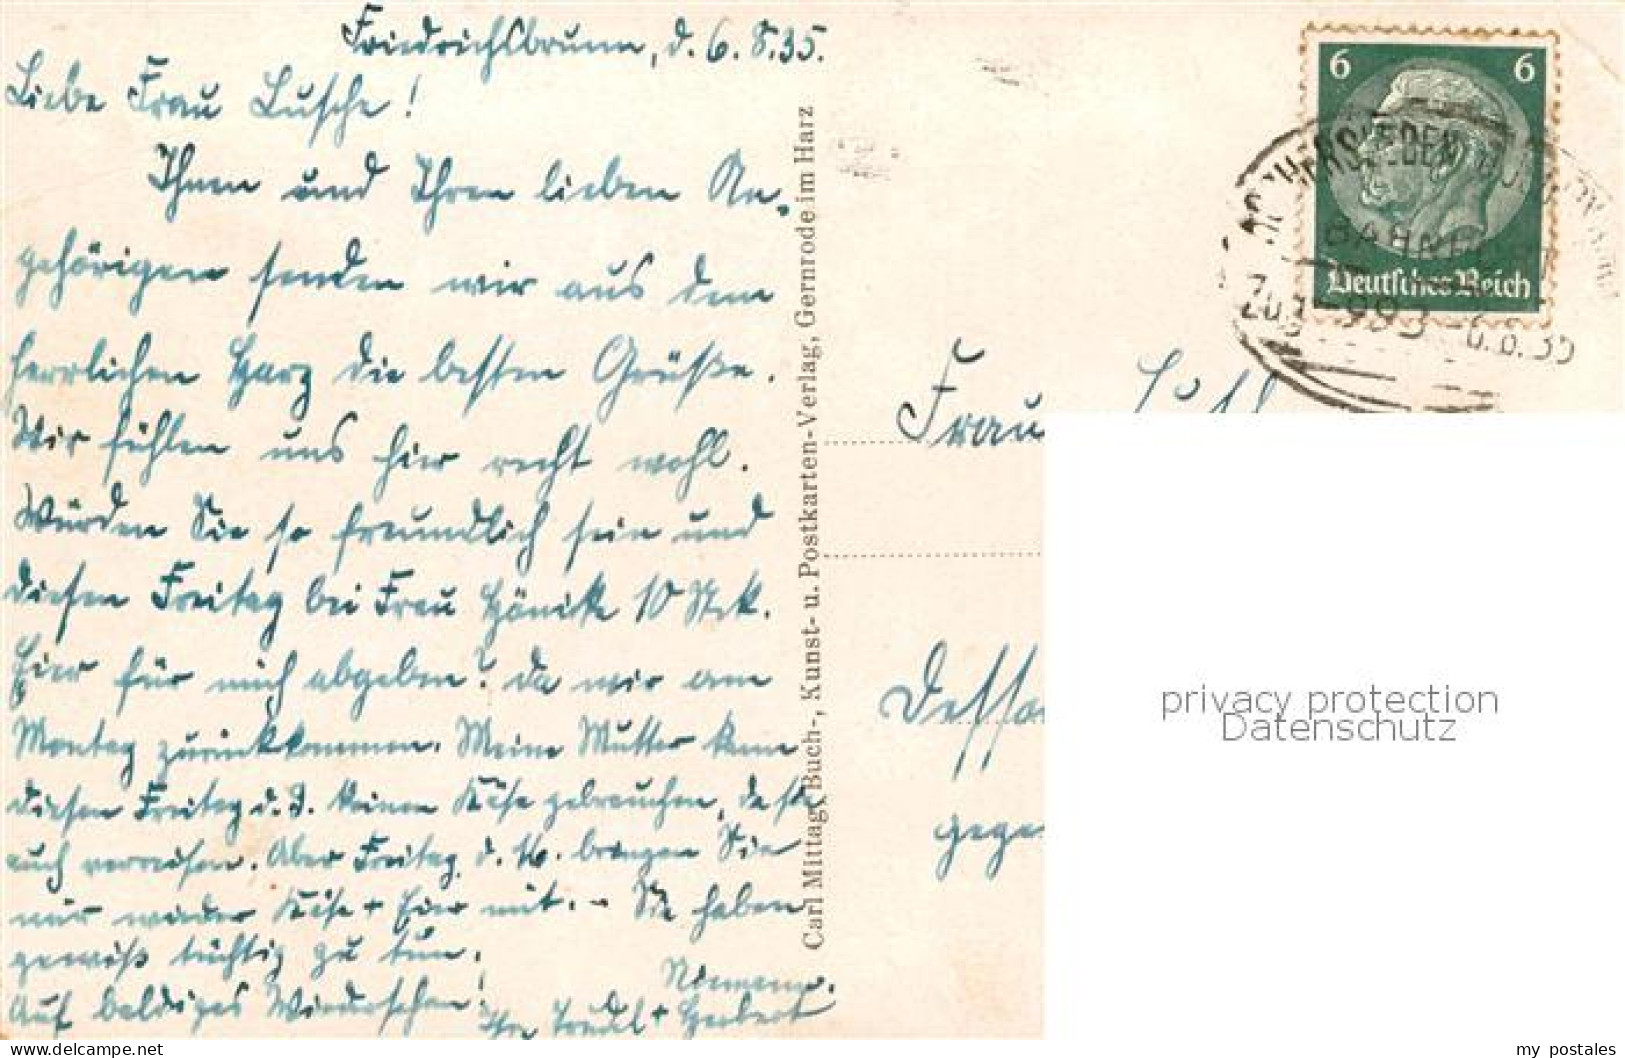 Friedrichsbrunn, d. 6. 8. 35.
Liebe Frau Lusche!
Ihnen und Ihren lieben An-
gehörigen senden wir aus dem
herrlichen Harz die besten Grüße.
Wir fühlen uns hier recht wohl.
Würden Sie so freundlich sein und
diesen Freitag bei Frau Hönicke 10 Stck.
Eier für mich abgeben? Da wir am
Montag zurückkommen. Meine Mutter kann
diesen Freitag d. 9. keinen Käse gebrauchen, da sie
auch verreisen. Aber Freitag, d. 16. bringen Sie
mir wieder Käse + Eier mit. – Sie haben
gewiß tüchtig zu tun.
Auf baldiges Wiedersehen!
Ihre Trudl + Herbert
Niemann.
Carl Mittag, Buch-, Kunst- u. Postkarten-Verlag, Gernrode im Harz
6 6
Deutsches Reich
BAHNPOST
Zug 993 -6.8.35
Frau
Dessau
gege
privacy protection
Datenschutz
Your ideal marketplace for collectibles
my postales